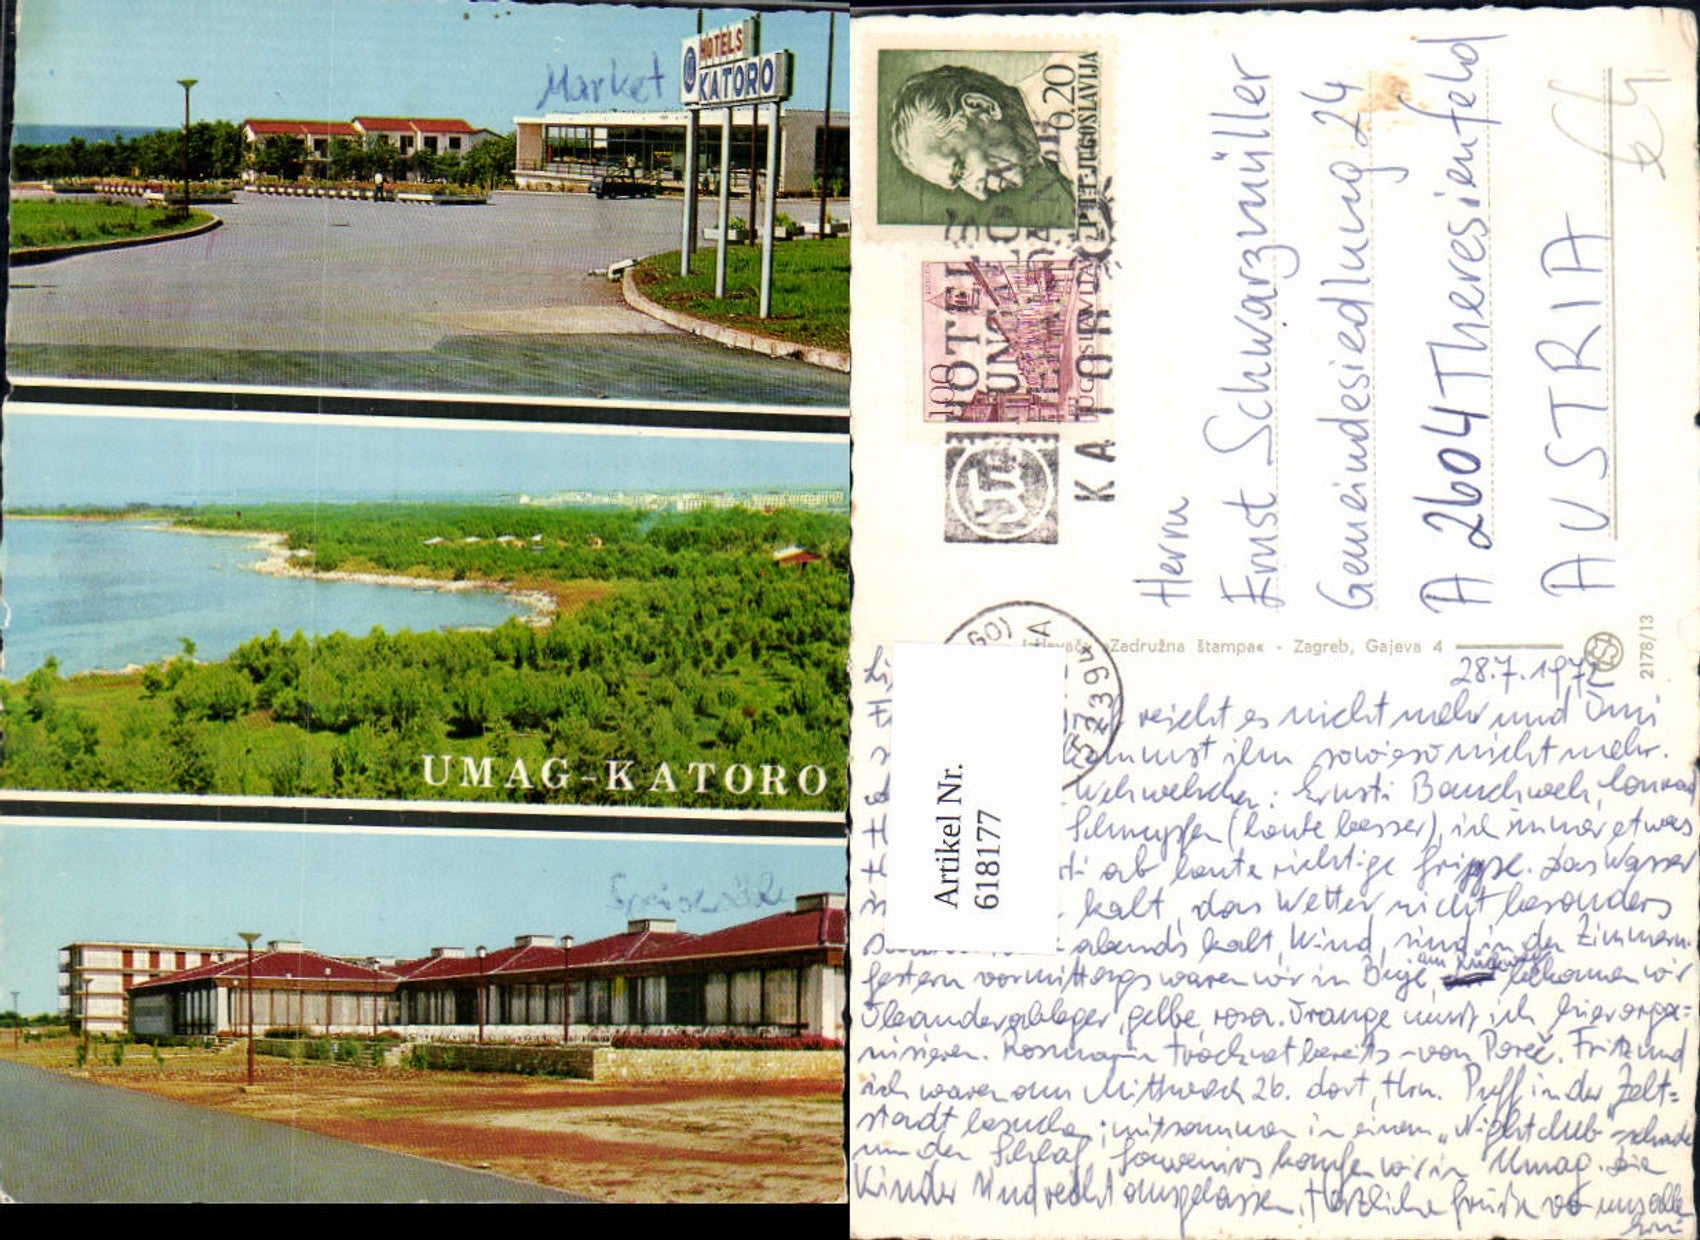 Market
HOTELS
KATORO
UMAG-KATORO
0,20
PTT JUGOSLAVIJA
1,00
JUGOSLAVIJA
HOTELI
KATORO
Herrn
Ernst Schwarzmüller
Gemeindesiedlung 24
A 2604 Theresienfeld
AUSTRIA
»Zadružna štampa« - Zagreb, Gajeva 4
2178/13
52394
Artikel Nr.
618177
28.7.1972
reicht es nicht mehr und Omi
ihm sowieso nicht mehr.
Wehwehchen: Ernsti Bauchweh, Konrad
Schnupfen (heute besser), ich immer etwas
ab heute richtige Grippe. Das Wasser
kalt, das Wetter nicht besonders
abends kalt, Wind, sind in den Zimmern.
Gestern vormittags waren wir in Buje, am Rückweg bekamen wir
Oleanderableger, gelbe, rosa. Orange muß ich hier orga=
nisieren. Rosmarin trocknet bereits - von Poreč. Fritz und
ich waren am Mittwoch 26. dort, Hrn. Puff in der Zelt=
stadt besuchen; mitsammen in einem "Nightclub" - schade
um den Schlaf. Souvenirs kaufen wir in Umag. Die
Kinder sind recht ausgelassen. Herzliche Grüße von uns allen